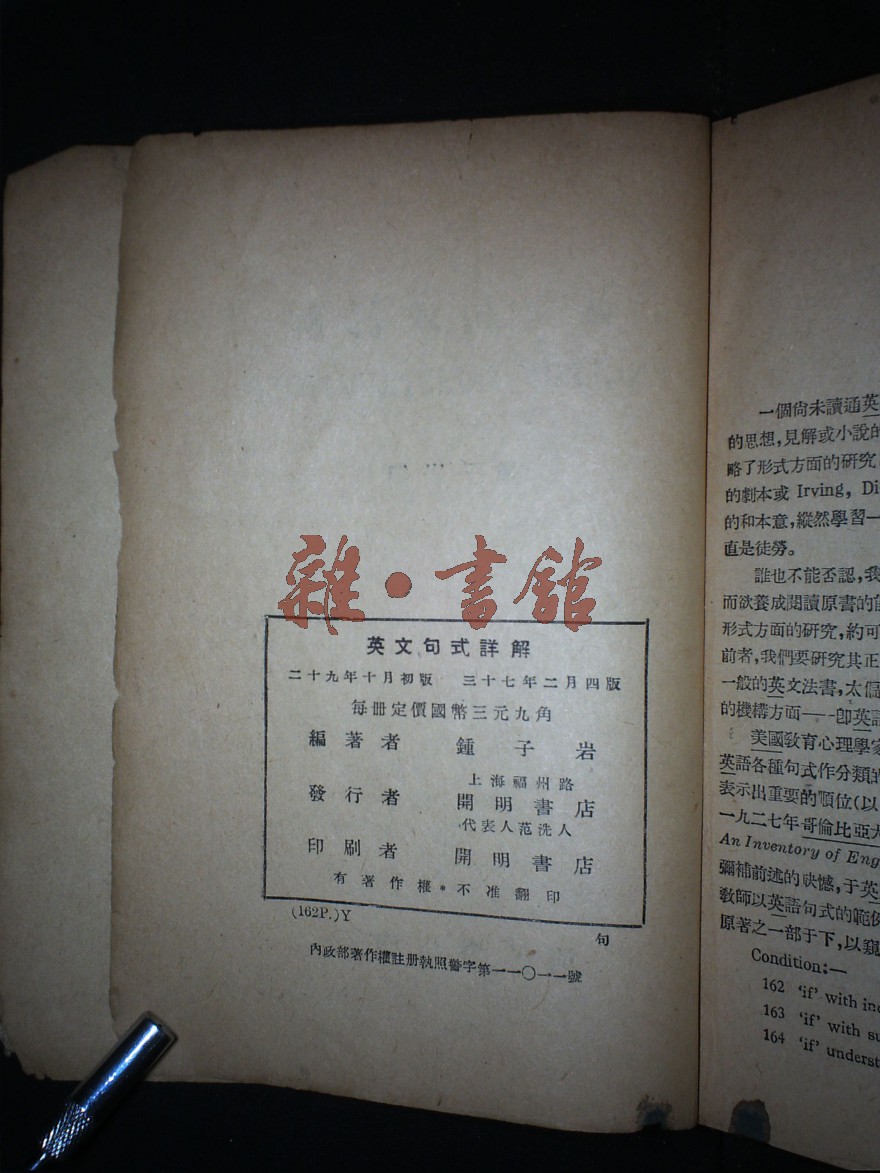 雜·書館
英文句式詳解
二十九年十月初版　三十七年二月四版
每册定價國幣三元九角
編著者　鍾子岩
上海福州路
發行者　開明書店
代表人范洗人
印刷者　開明書店
有著作權*不准翻印
(162P.)Y
句
內政部著作權註册執照警字第一一〇一一號
一個尙未讀通英
的思想,見解或小說的
略了形式方面的研究
的劇本或 Irving, Di
的和本意,縱然學習一
直是徒勞。
誰也不能否認,我
而欲養成閱讀原書的能
形式方面的研究,約可
前者,我們要研究其正
一般的英文法書,太偏
的機構方面——卽英語
美國敎育心理學家
英語各種句式作分類的
表示出重要的順位(以
一九二七年哥倫比亞大
An Inventory of Eng
彌補前述的缺憾,于英
敎師以英語句式的範例
原著之一部于下,以窺
Condition:—
162 'if' with ind
163 'if' with su
164 'if' underst